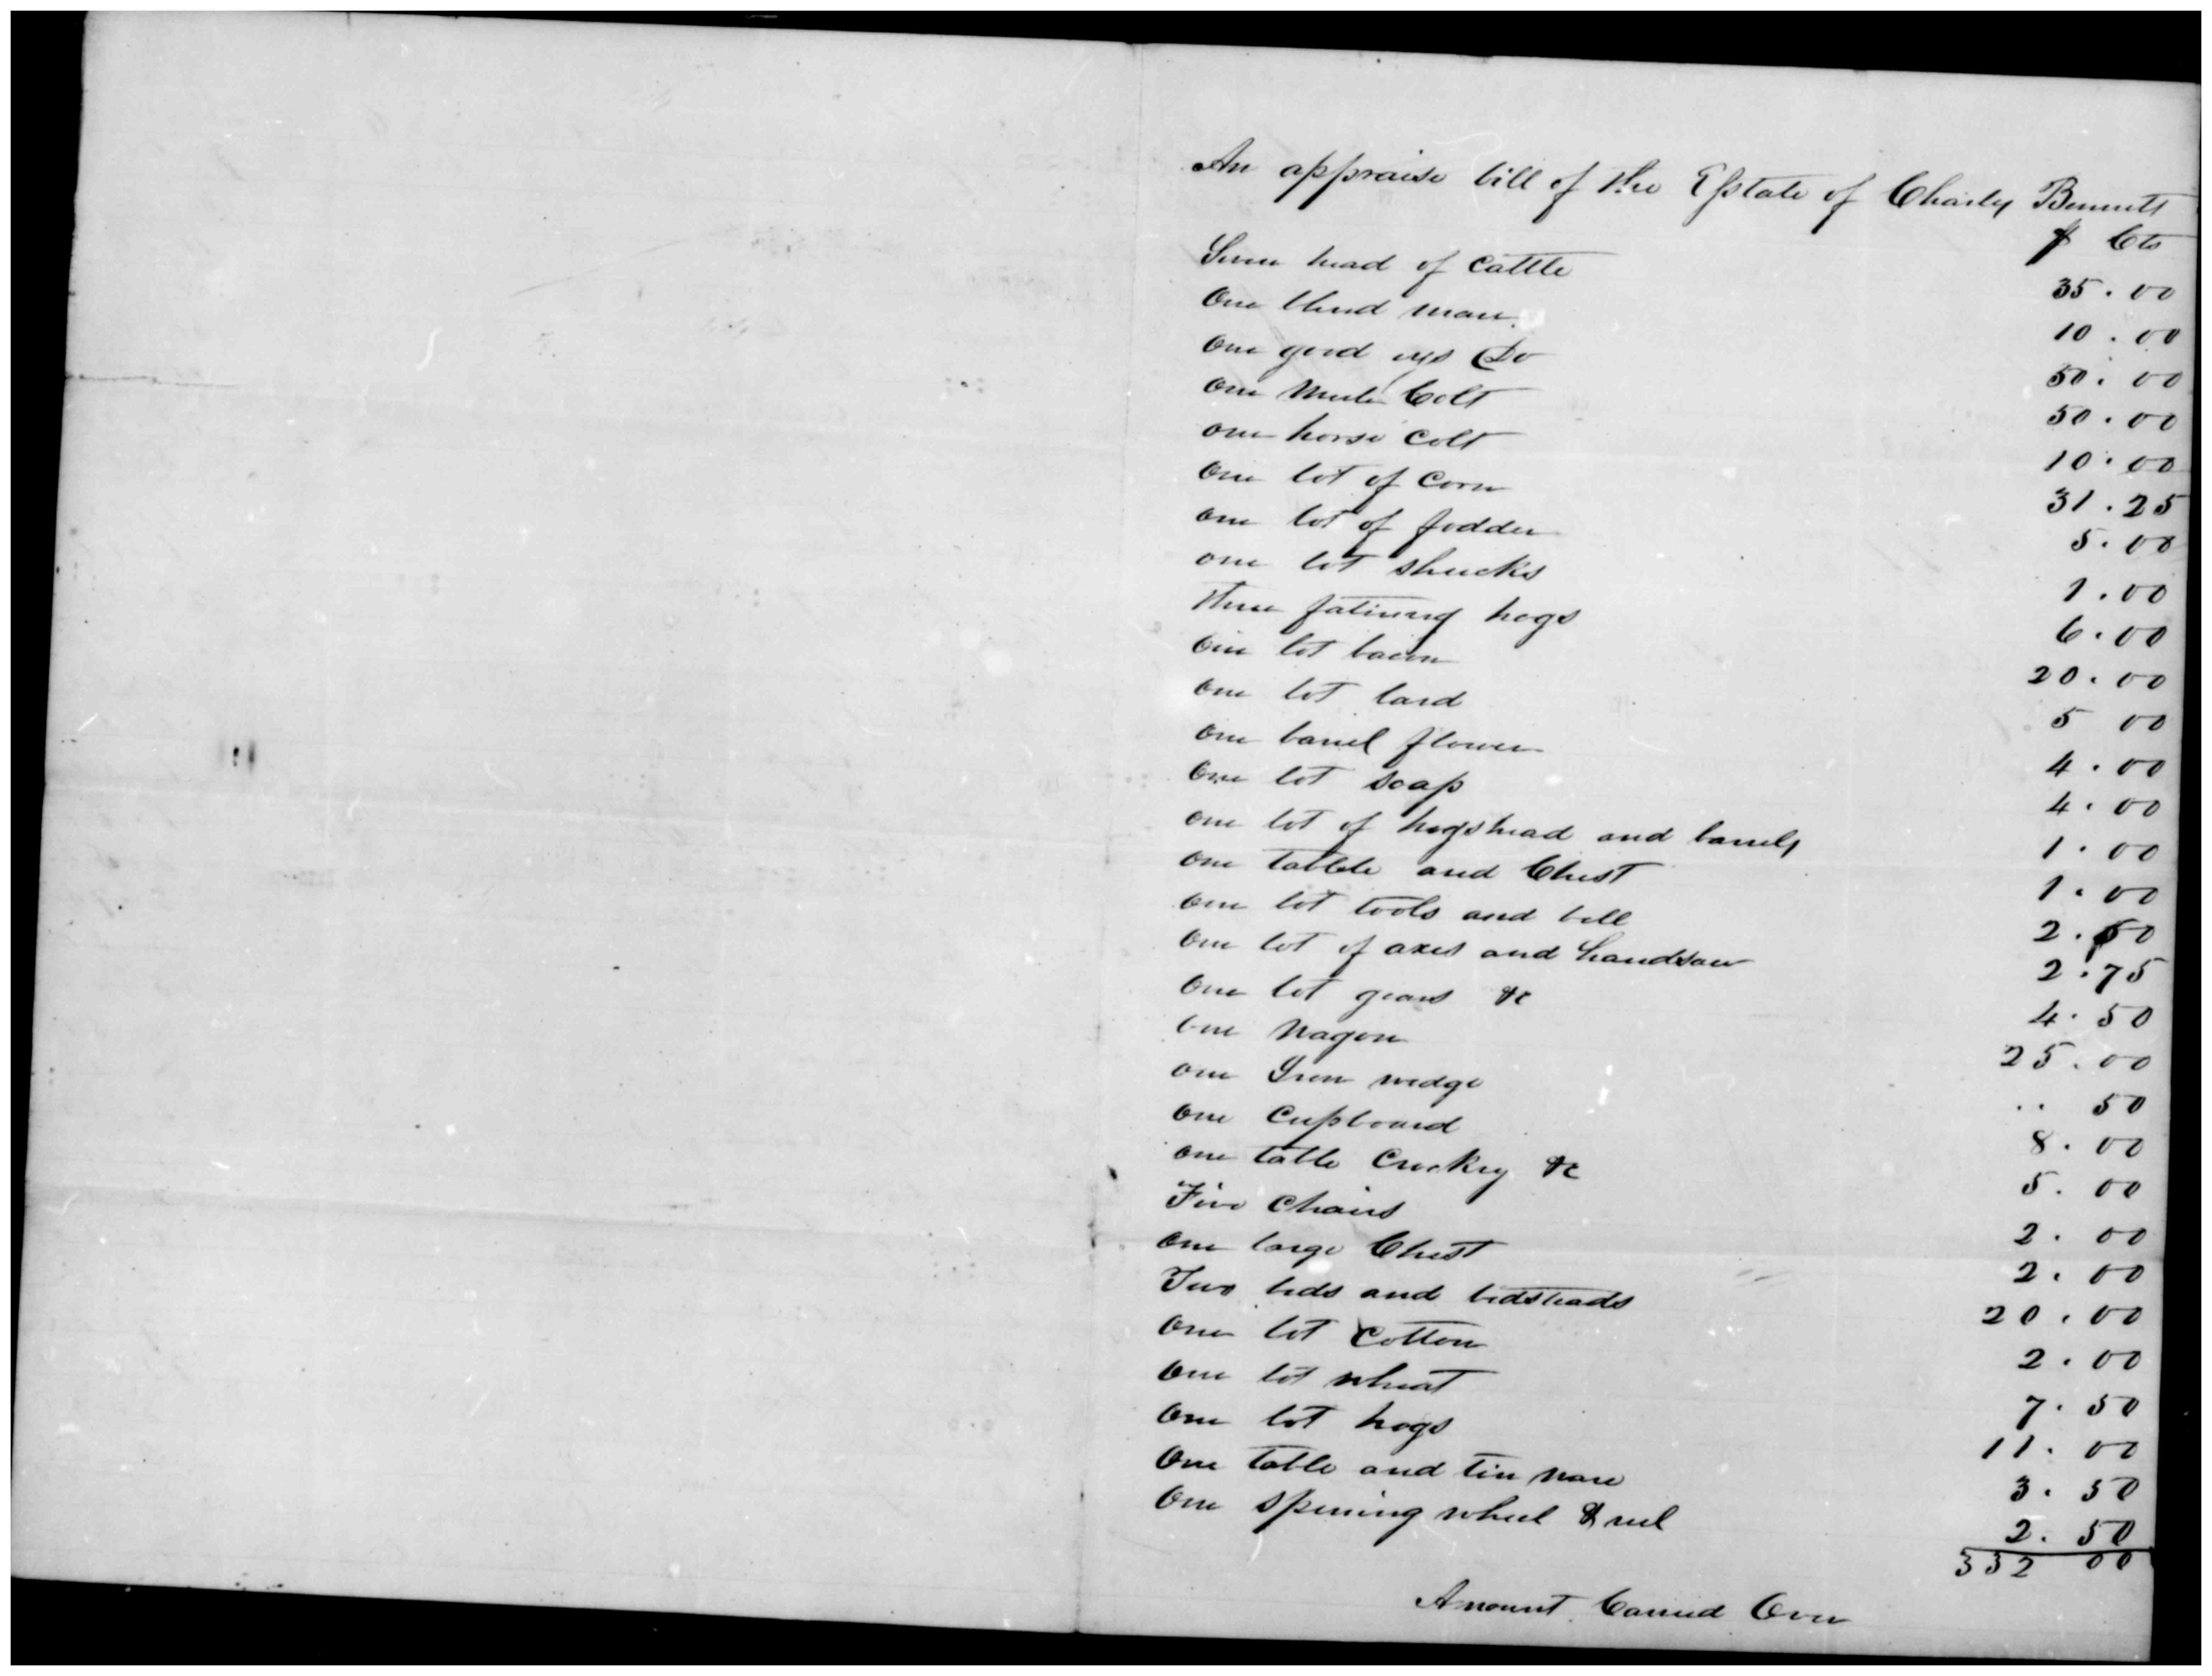 An appraise bill of the Estate of Charles Bennett
$ Cts
Seven head of cattle 35.00
One blind mare 10.00
One good eye Do 50.00
One mule Colt 50.00
one horse colt 10.00
One lot of corn 31.25
one lot of fodder 5.00
one lot shucks 1.00
Three fatining hogs 6.00
One lot bacon 20.00
One lot lard 5 00
One barrel flower 4.00
One lot soap 4.00
one lot of hogshead and barrels 1.00
One tabble and Chest 1.00
One lot tools and bell 2.50
One lot of axes and handsaw 2.75
One lot gears &c 4.50
One Wagon 25.00
one Iron wedge .. 50
One Cupboard 8.00
One table Crockry &c 5.00
Five chairs 2.00
One large Chest 2.00
Two beds and bedsteads 20.00
One lot cotton 2.00
One lot wheat 7.50
One lot hogs 11.00
One table and tin ware 3.50
One spining wheel & reel 2.50
332 00
Amount Carried Over